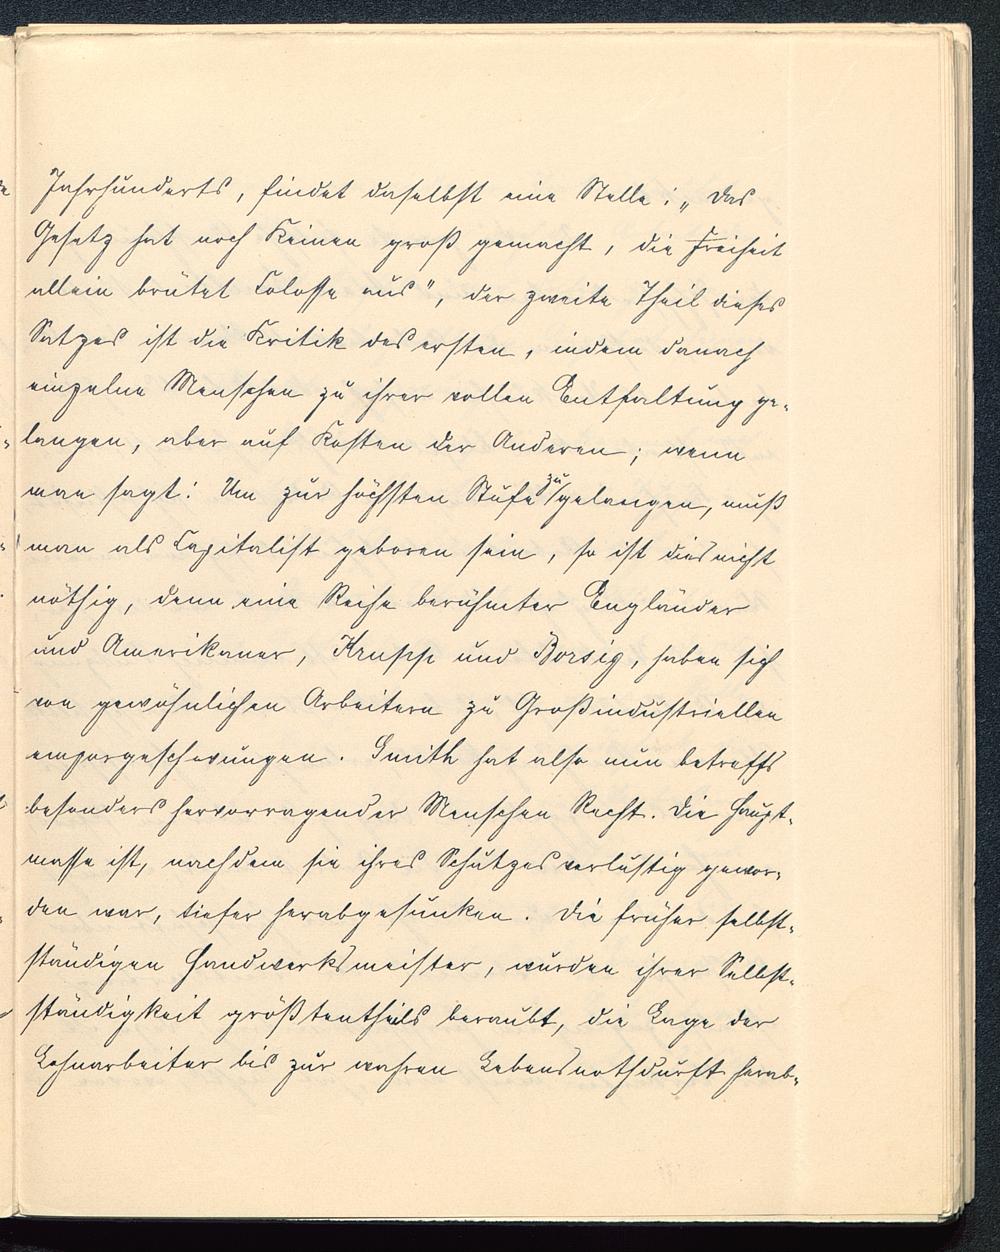 Jahrhunderts, findet daselbst eine Stelle: „Das
Gesetz hat noch Keinen groß gemacht, die Freiheit
allein brütet Colosse aus", der zweite Theil dieses
Satzes ist die Kritik des ersten, indem danach
einzelne Menschen zu ihrer vollen Entfaltung ge-
langen, aber auf Kosten der Anderen; wenn
man sagt: Um zur höchsten Stufe zu gelangen, muß
man als Capitalist geboren sein, so ist dies nicht
nöthig, denn eine Reihe berühmter Engländer
und Amerikaner, Krupp und Borsig, haben sich
von gewöhnlichen Arbeitern zu Großindustriellen
emporgeschwungen. Smith hat also nun betreffs
besonders hervorragender Menschen Recht. Die Haupt-
masse ist, nachdem sie ihres Schutzes verlustig gewor-
den war, tiefer herabgesunken. Die früher selbst-
ständigen Handwerksmeister, wurden ihrer Selbst-
ständigkeit größtentheils beraubt, die Lage der
Lohnarbeiter bis zur wahren Lebensnothdurft herab-